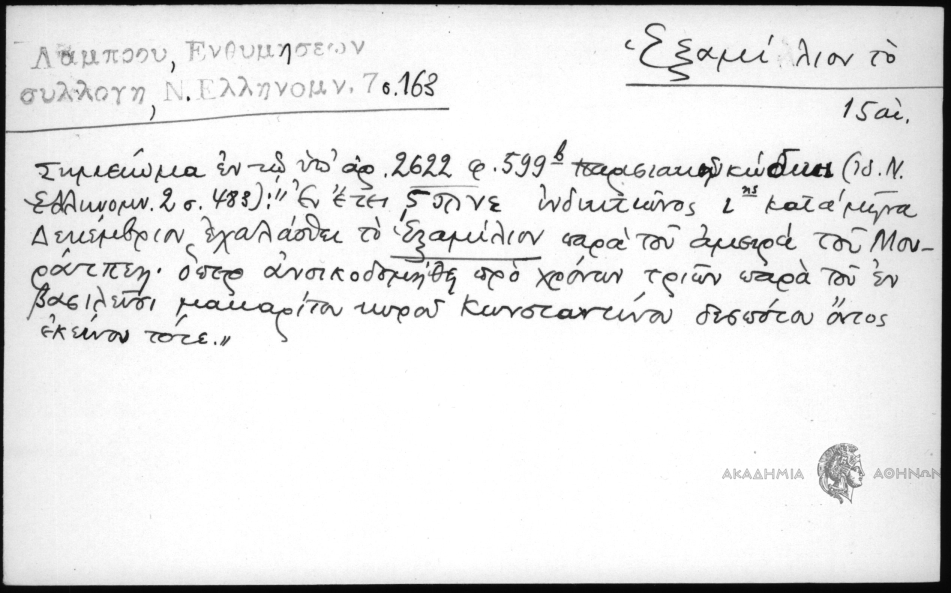 Λάμπρου, Ενθυμησεων
συλλογη, Ν. Ελληνομν. 7 σ. 163
Ἑξαμίλιον τὸ
15 αἰ.
Σημείωμα ἐν τῷ ὑπ' ἀρ. 2622 φ. 599β παρισιακῷ κώδικι (ἰδ. Ν.
Ἑλληνομν. 2 σ. 483): "Ἐν ἔτει ϛϡνε ἰνδικτιῶνος ιης κατὰ μῆνα
Δεκέμβριον ἐχαλάσθει τὸ Ἑξαμίλιον παρὰ τοῦ ἀμειρᾶ τοῦ Μου-
ράτπεη· ὅπερ ἀνοικοδομήθη πρὸ χρόνων τριῶν παρὰ τοῦ ἐν
βασιλεῦσι μακαρίτου κυροῦ Κωνσταντίνου δεσπότου ὄντος
ἐκείνου τότε."
ΑΚΑΔΗΜΙΑ ΑΘΗΝΩΝ